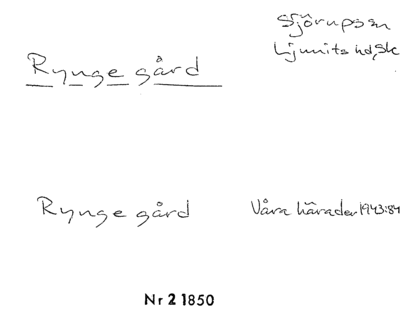 Sjörups sn
Ljunits hd, Sk
Rynge gård
Rynge gård
Våra härader 1943:84
Nr 21850